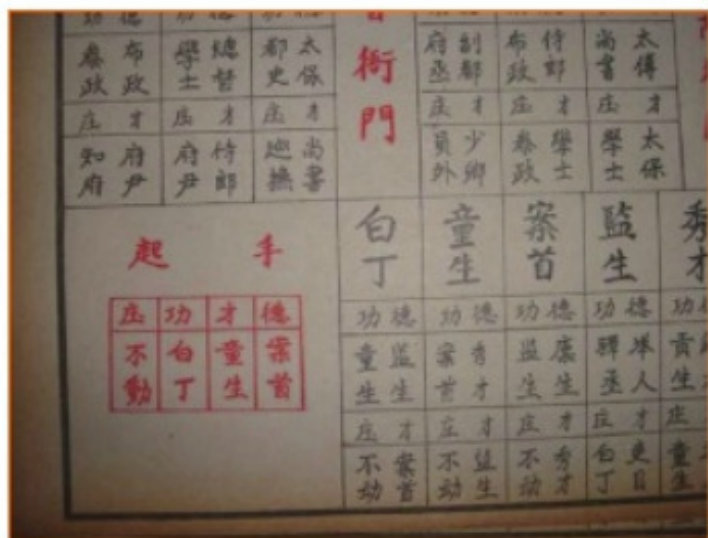 功 德 功 德 功 德
叅政 布政 學士 總督 都史 太保
庄 才 庄 才 庄 才
知府 府尹 府尹 侍郎 巡撫 尚書
衙門
府丞 副都 布政 侍郎 尚書 太傅
庄 才 庄 才 庄 才
員外 少卿 叅政 學士 學士 太保
起 手
庄 功 才 德
不動 白丁 童生 案首
白丁 童生 案首 監生 秀才
功 德 功 德 功 德 功 德 功
童生 監生 案首 秀才 監生 廩生 驛丞 举人 貢生
庄 才 庄 才 庄 才 庄 才 庄
不动 案首 不动 监生 不动 秀才 白丁 吏目 童生